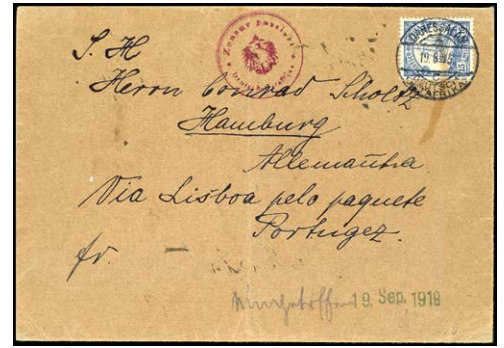 Zensur passiert
DARESSALAM
19.8.15
S. H
Herrn Conrad Scholtz
Hamburg
Allemanha
Via Lisboa pelo paquete
Portugez.
fr.
19. Sep. 1919